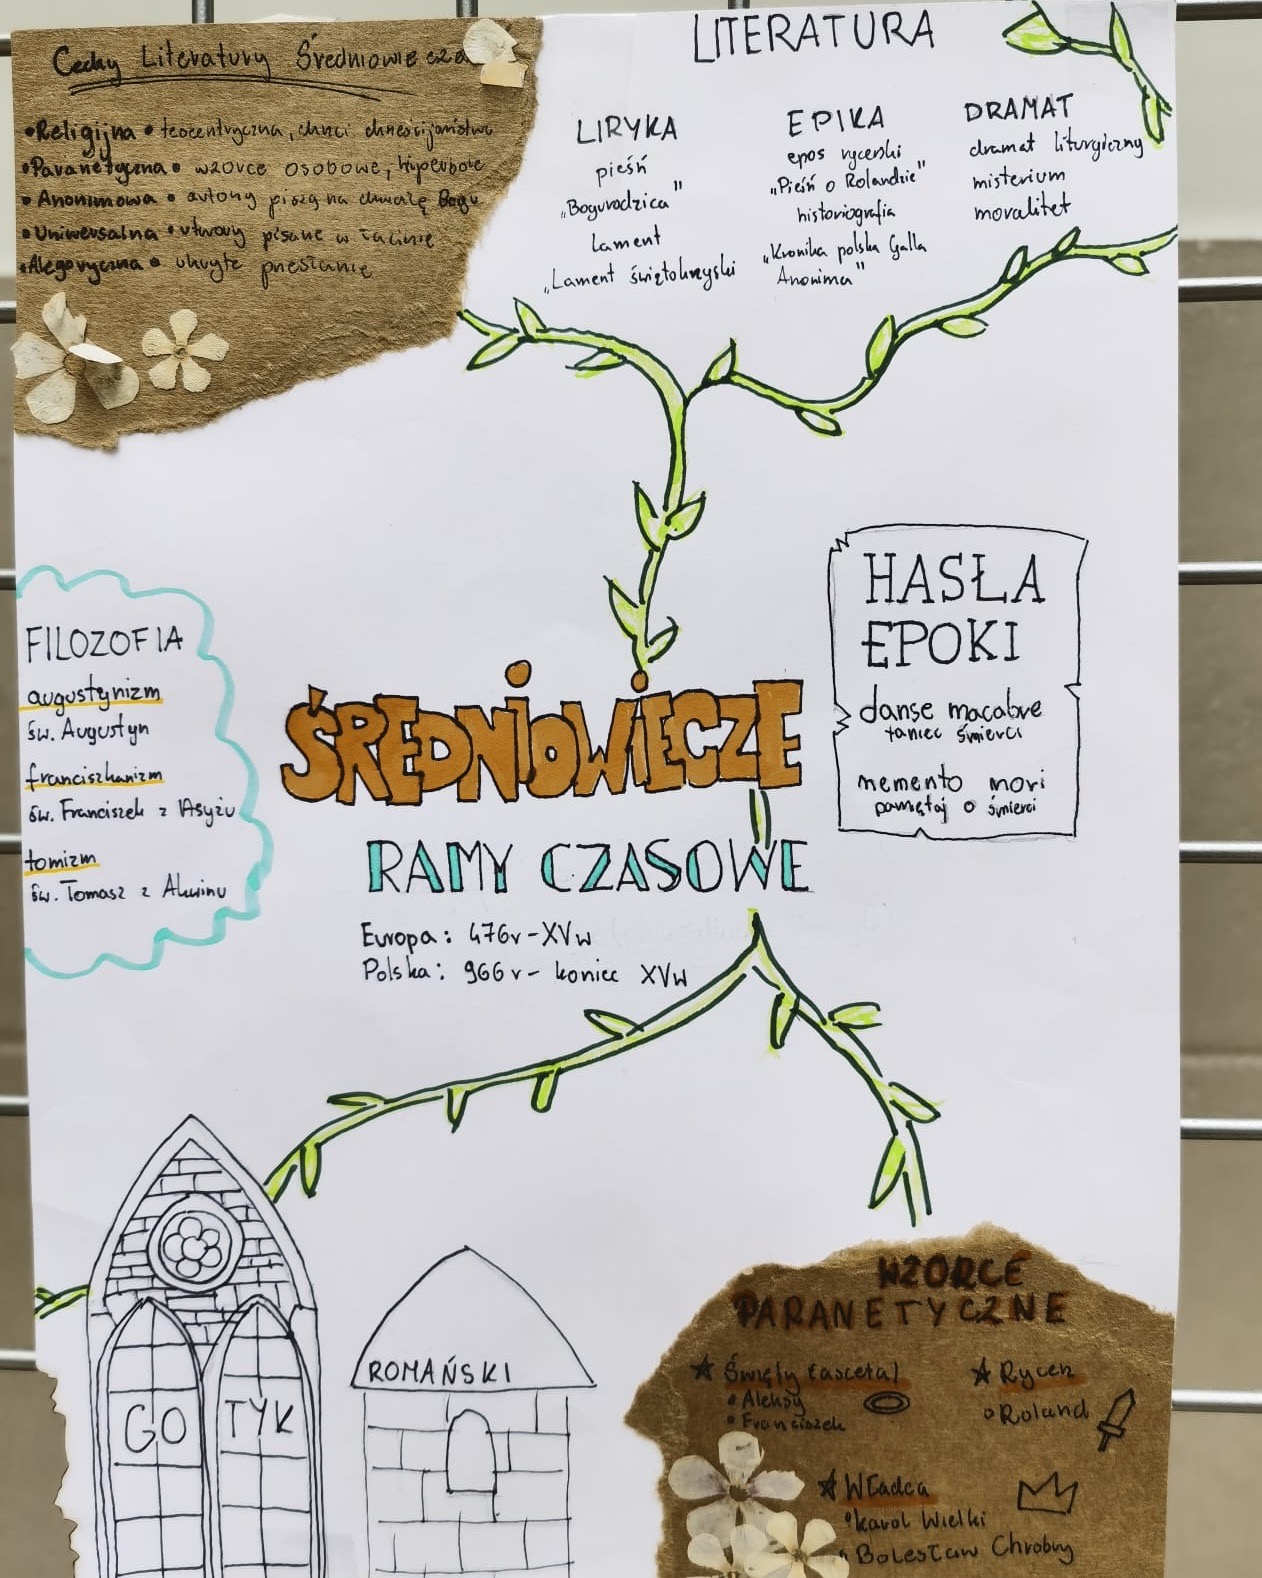 Cechy Literatury Średniowiecza
•Religijna • teocentryczna, chrześcijaństwo
•Paranetyczna • wzorce osobowe, hiperbole
•Anonimowa • autorzy piszą na chwałę Bogu
•Uniwersalna • utwory pisane w łacinie
•Alegoryczna • ukryte przesłanie
LITERATURA
LIRYKA
pieśń
„Bogurodzica"
Lament
„Lament świętokrzyski
EPIKA
epos rycerski
„Pieśń o Rolandzie"
historiografia
„Kronika polska Galla
Anonima"
DRAMAT
dramat liturgiczny
misterium
moralitet
FILOZOFIA
augustynizm
św. Augustyn
franciszkanizm
św. Franciszek z Asyżu
tomizm
św. Tomasz z Akwinu
HASŁA
EPOKI
danse macabre
taniec śmierci
memento mori
pamiętaj o śmierci
ŚREDNIOWIECZE
RAMY CZASOWE
Europa: 476r-XVw
Polska: 966r- koniec XVw
GOTYK
ROMAŃSKI
WZORCE
PARANETYCZNE
Święty (asceta)
• Aleksy
• Franciszek
Rycerz
Roland
Władca
• Karol Wielki
• Bolesław Chrobry